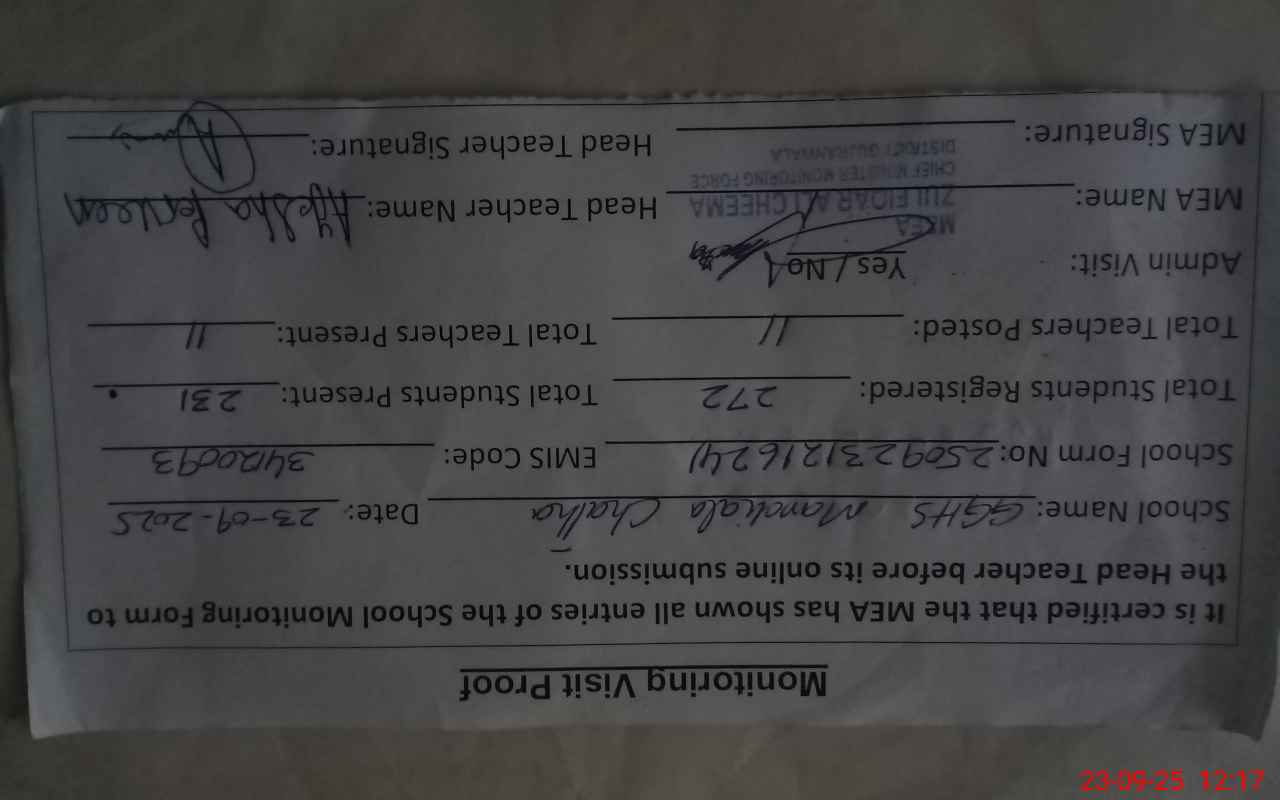 Monitoring Visit Proof
It is certified that the MEA has shown all entries of the School Monitoring Form to
the Head Teacher before its online submission.
School Name: GGHS Mandiala Chalha Date: 23-09-2025
School Form No: 2509231216241 EMIS Code: 34120093
Total Students Registered: 272 Total Students Present: 231
Total Teachers Posted: 11 Total Teachers Present: 11
Admin Visit: Yes / No
MEA
MEA Name: ZULFIQAR ALI CHEEMA Head Teacher Name: Ayesha Perveen
CHIEF MINISTER MONITORING FORCE
DISTRICT GUJRANWALA
MEA Signature: Head Teacher Signature:
23-09-25 12:17